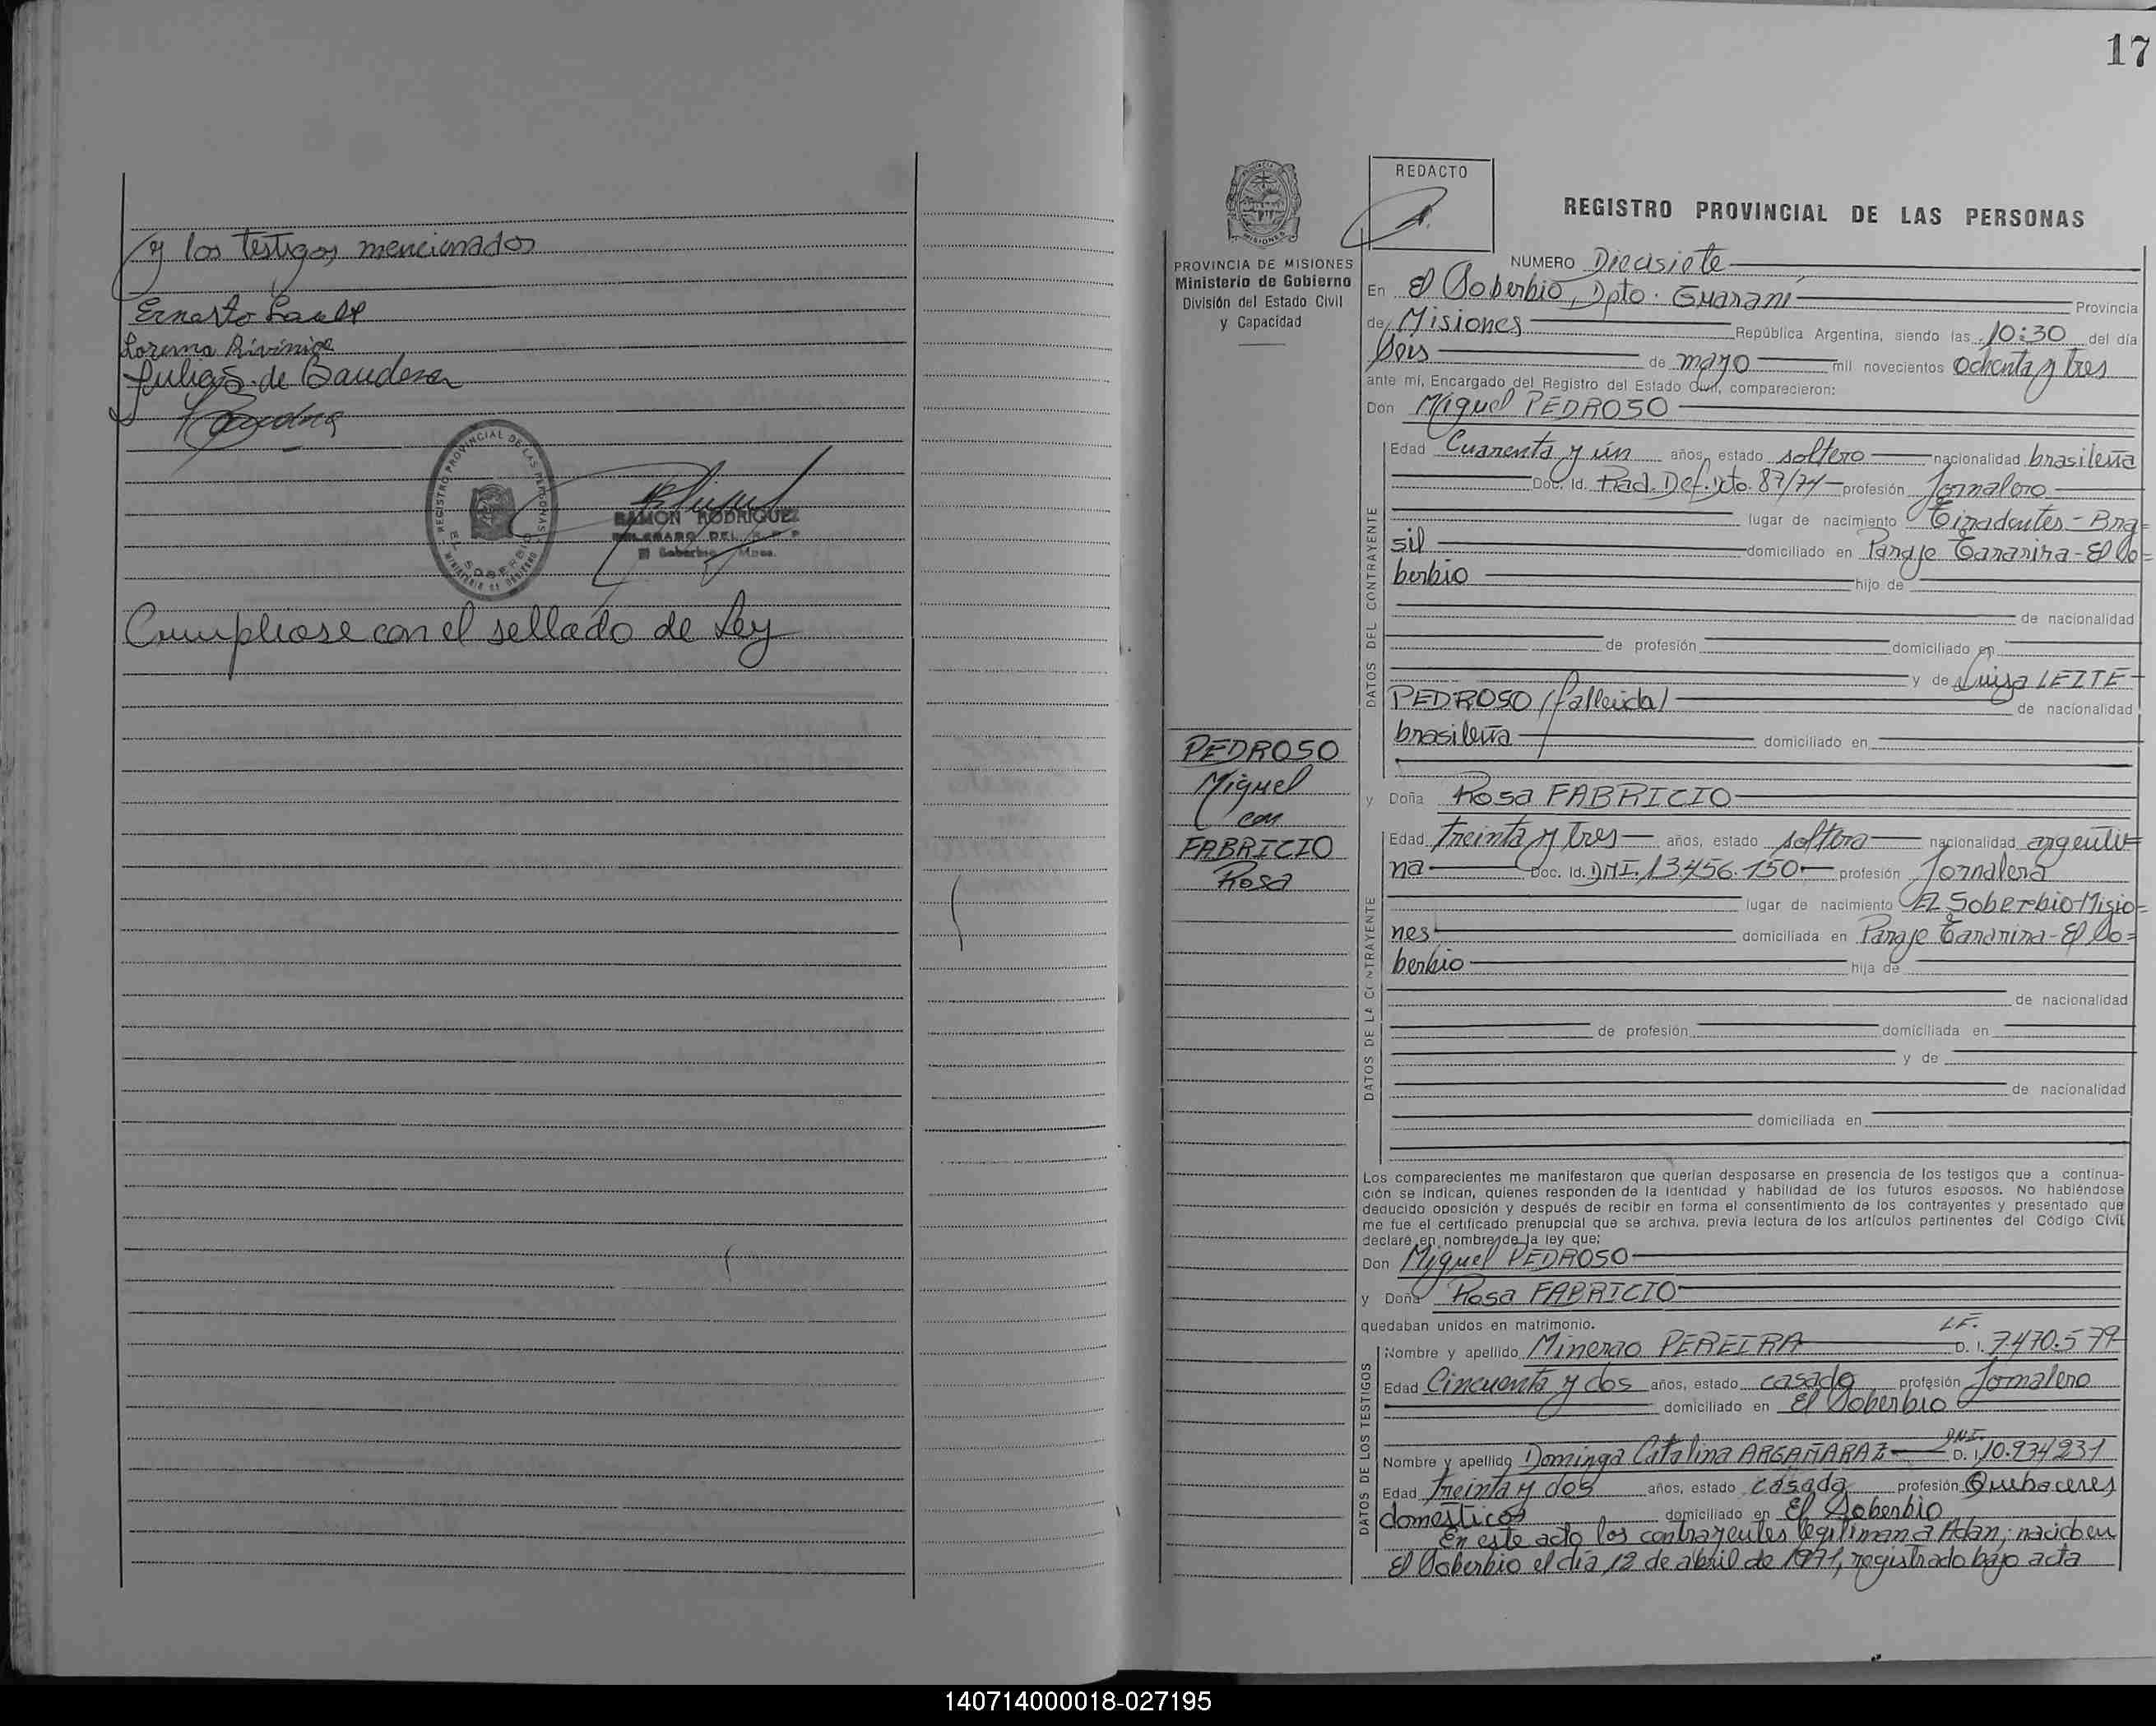 y los testigos mencionados
Ernesto
Lorema
Julia S. de Bandera
REGISTRO PROVINCIAL DE LAS PERSONAS
EL SOBERBIO
MINISTERIO DE GOBIERNO
RAMON RODRIGUEZ
DELEGADO DEL R. P. P.
El Soberbio Mnes.
Cumpliose con el sellado de Ley
17
PROVINCIA DE MISIONES
Ministerio de Gobierno
División del Estado Civil
y Capacidad
PEDROSO
Miguel
con
FABRICIO
Rosa
REDACTO
REGISTRO PROVINCIAL DE LAS PERSONAS
NUMERO Diecisiete
En El Soberbio, Dpto. Guaraní Provincia
de Misiones República Argentina, siendo las 10:30 del día
Seis de mayo mil novecientos Ochenta y tres
ante mí, Encargado del Registro del Estado Civil, comparecieron:
Don Miguel PEDROSO
DATOS DEL CONTRAYENTE
Edad Cuarenta y ún años, estado soltero nacionalidad brasileña
Doc. Id. Rad. Def. 87/74 profesión Jornalero
lugar de nacimiento Tiradentes - Bra=
sil domiciliado en Paraje Tararira - El So=
berbio hijo de
de nacionalidad
de profesión domiciliado en
y de Luisa LEITE
PEDROSO (fallecida) de nacionalidad
brasileña domiciliado en
y Doña Rosa FABRICIO
DATOS DE LA CONTRAYENTE
Edad treinta y tres años, estado soltera nacionalidad argenti=
na Doc. Id. DNI. 13.456.150 profesión Jornalera
lugar de nacimiento El Soberbio-Misio=
nes domiciliada en Paraje Tararira - El So=
berbio hija de
de nacionalidad
de profesión domiciliada en
y de
de nacionalidad
domiciliada en
Los comparecientes me manifestaron que querían desposarse en presencia de los testigos que a continua-
ción se indican, quienes responden de la identidad y habilidad de los futuros esposos. No habiéndose
deducido oposición y después de recibir en forma el consentimiento de los contrayentes y presentado que
me fue el certificado prenupcial que se archiva, previa lectura de los artículos pertinentes del Código Civil
declaré en nombre de la ley que:
Don Miguel PEDROSO
y Doña Rosa FABRICIO
quedaban unidos en matrimonio.
DATOS DE LOS TESTIGOS
Nombre y apellido Minerao PEREIRA L.E. D. I. 7.470.579
Edad Cincuenta y dos años, estado casado profesión Jornalero
domiciliado en El Soberbio
Nombre y apellido Dominga Catalina ARGAÑARAZ DNI. D. I. 10.934231
Edad treinta y dos años, estado casada profesión Quehaceres
domésticos domiciliado en El Soberbio
En este acto los contrayentes legitiman a Adan, nacido en
El Soberbio el día 12 de abril de 1971, registrado bajo acta
140714000018-027195